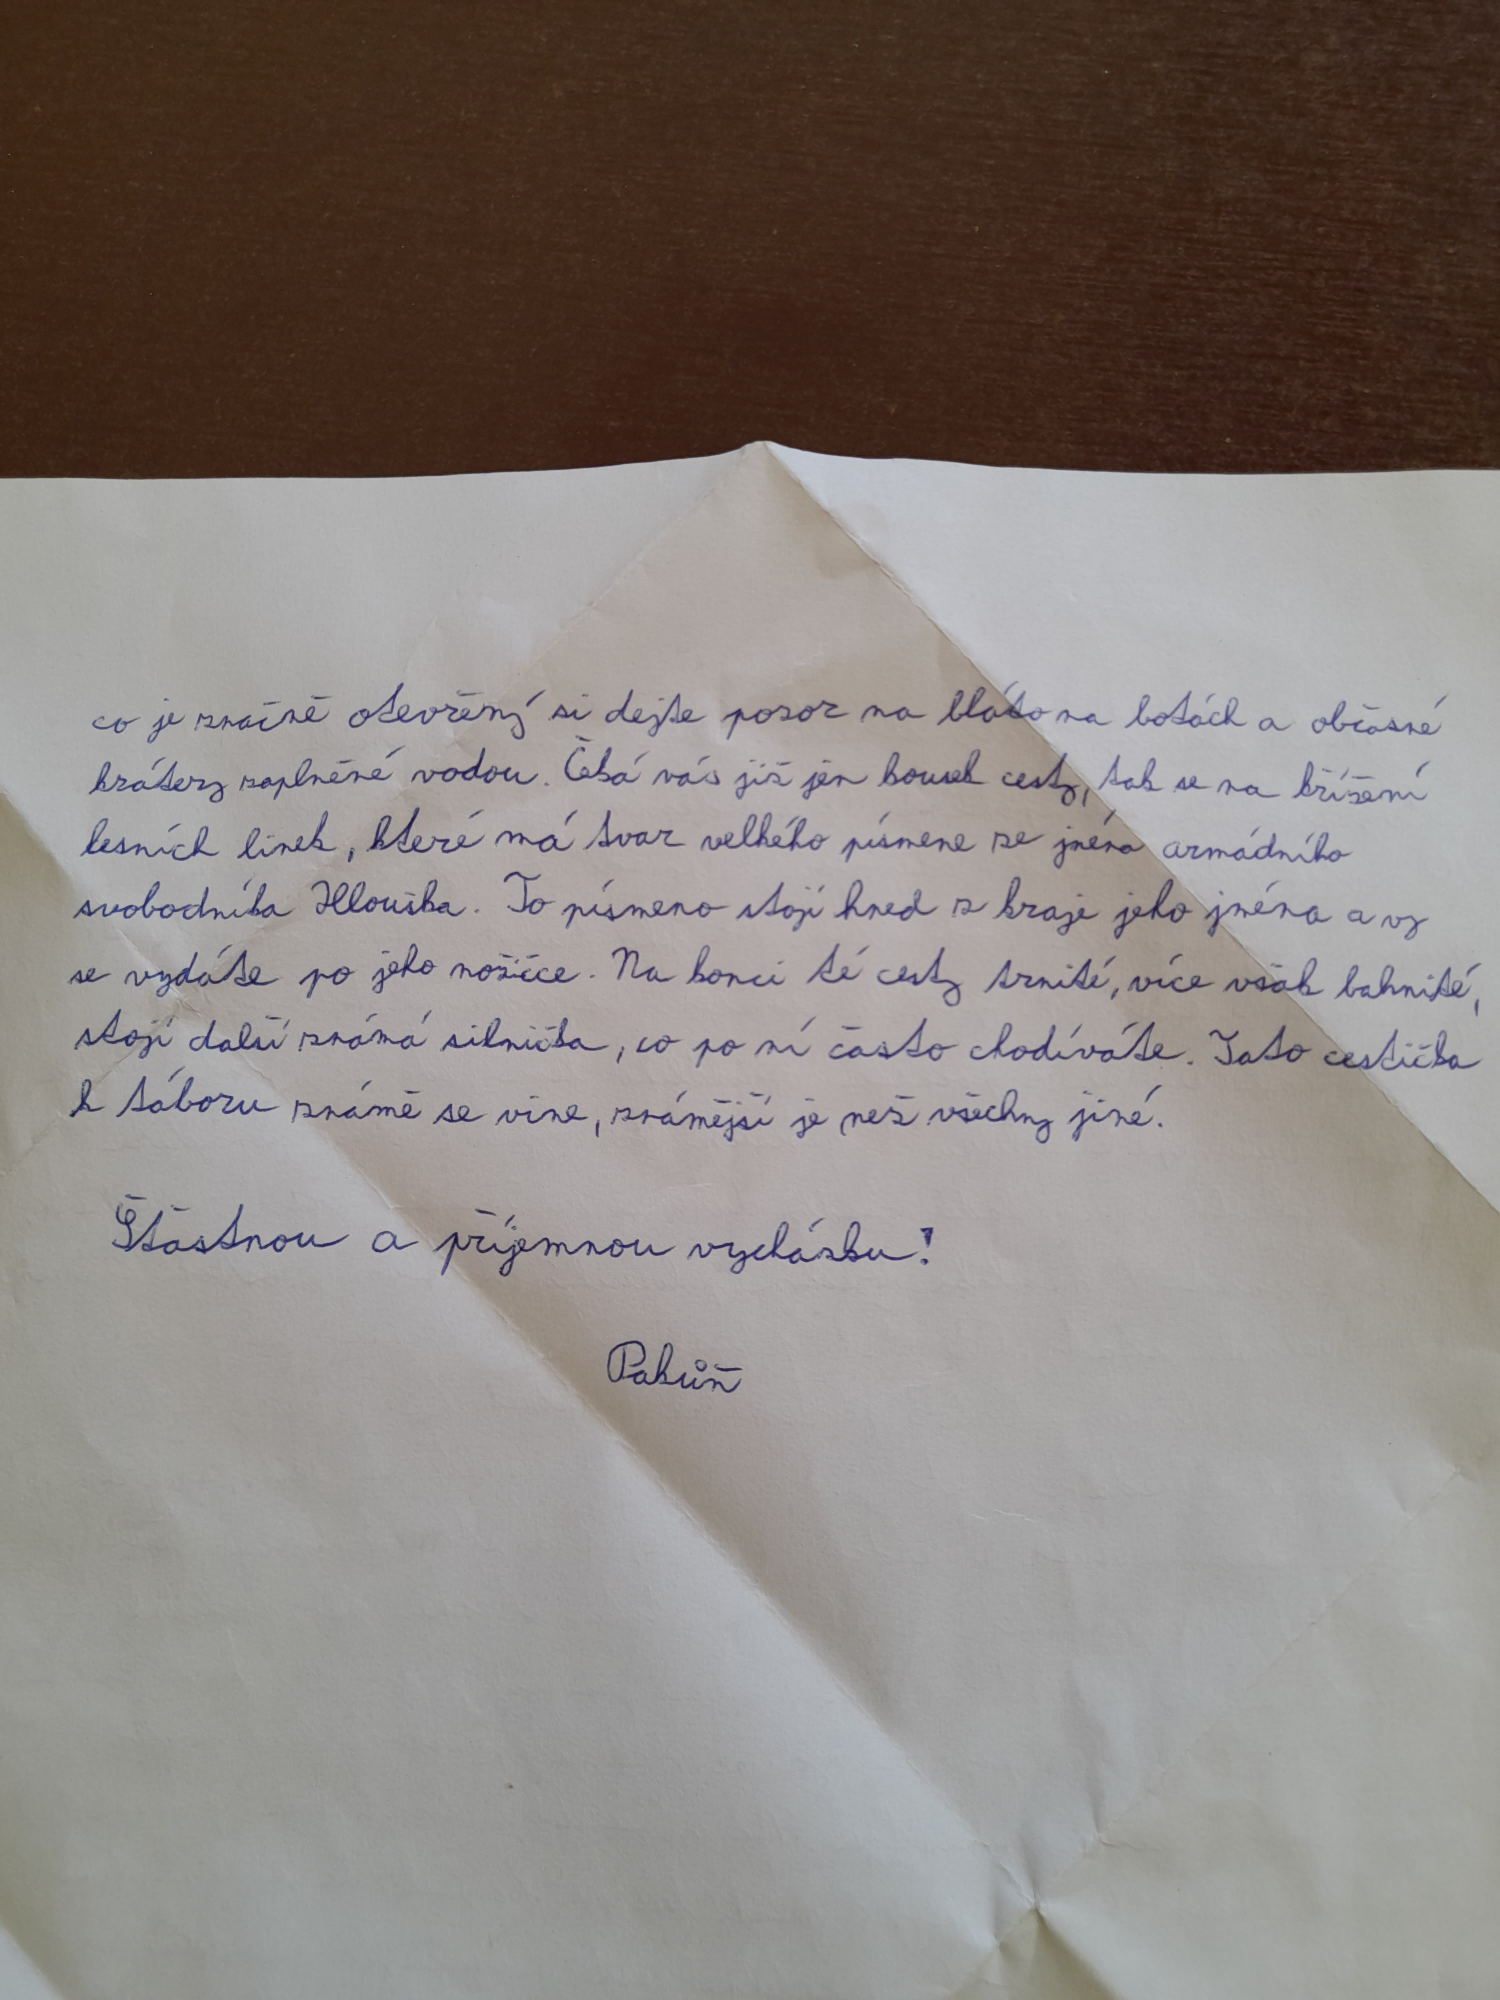 co je značně otevřený si dejte pozor na bláto na botách a občasné
krátery zaplněné vodou. Čeká vás již jen kousek cesty, tak se na křížení
lesních linek, které má tvar velkého písmene ze jména armádního
svobodníka Hlouška. To písmeno stojí hned z kraje jeho jména a vy
se vydáte po jeho nožičce. Na konci té cesty trnité, více však bahnité,
stojí další známá silnička, co po ní často chodíváte. Tato cestička
k táboru známě se vine, známější je než všechny jiné.
Šťastnou a příjemnou vycházku!
Pakůň